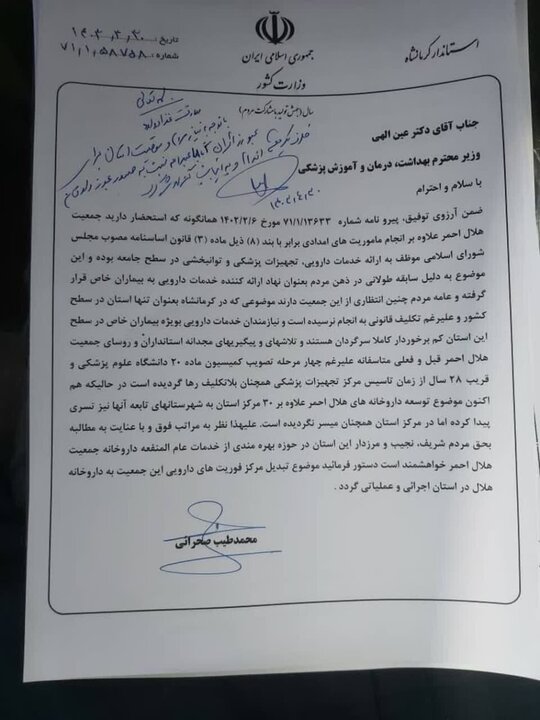 استاندار کرمانشاه
جمهوری اسلامی ایران
وزارت کشور
تاریخ: ۱۴۰۳,۴,۳۰
شماره: ۷۱,۱,۵۸۷۵۸
سال (جهش تولید با مشارکت مردم)
جناب آقای دکتر عین الهی
وزیر محترم بهداشت، درمان و آموزش پزشکی
با سلام و احترام
ضمن آرزوی توفیق، پیرو نامه شماره ۷۱/۱/۱۳۶۳۳ مورخ ۱۴۰۲/۲/۶ همانگونه که استحضار دارید جمعیت
هلال احمر علاوه بر انجام ماموریت های امدادی برابر با بند (۸) ذیل ماده (۳) قانون اساسنامه مصوب مجلس
شورای اسلامی موظف به ارائه خدمات دارویی، تجهیزات پزشکی و توانبخشی در سطح جامعه بوده و این
موضوع به دلیل سابقه طولانی در ذهن مردم بعنوان نهاد ارائه کننده خدمات دارویی به بیماران خاص قرار
گرفته و عامه مردم چنین انتظاری از این جمعیت دارند موضوعی که در کرمانشاه بعنوان تنها استان در سطح
کشور و علیرغم تکلیف قانونی به انجام نرسیده است و نیازمندان خدمات دارویی بویژه بیماران خاص در سطح
این استان کم برخوردار کاملا سرگردان هستند و تلاشهای و پیگیریهای مجدانه استانداران و روسای جمعیت
هلال احمر قبل و فعلی متاسفانه علیرغم چهار مرحله تصویب کمیسیون ماده ۲۰ دانشگاه علوم پزشکی و
قریب ۲۸ سال از زمان تاسیس مرکز تجهیزات پزشکی همچنان بلاتکلیف رها گردیده است در حالیکه هم
اکنون موضوع توسعه داروخانه های هلال احمر علاوه بر ۳۰ مرکز استان به شهرستانهای تابعه آنها نیز تسری
پیدا کرده اما در مرکز استان همچنان میسر نگردیده است. علیهذا نظر به مراتب فوق و با عنایت به مطالبه
بحق مردم شریف، نجیب و مرزدار این استان در حوزه بهره مندی از خدمات عام المنفعه داروخانه جمعیت
هلال احمر خواهشمند است دستور فرمائید موضوع تبدیل مرکز فوریت های دارویی این جمعیت به داروخانه
هلال در استان اجرائی و عملیاتی گردد.
محمدطیب صحرائی